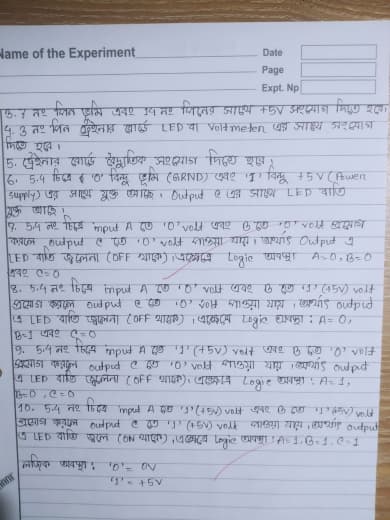 Name of the Experiment
Date
Page
Expt. Np
3. 7 নং পিন ভূমি এবং 14 নং পিনের সাথে +5V সংযোগ দিতে হবে।
4. 3 নং পিন ট্রেইনার বোর্ডে LED বা Voltmeter এর সাথে সংযোগ
দিতে হবে।
5. ট্রেইনার বোর্ডে বৈদ্যুতিক সংযোগ দিতে হবে।
6. 5.4 চিত্রে '0' বিন্দু ভূমি (GRND) এবং '1' বিন্দু +5V (Power
supply) এর সাথে যুক্ত আছে। Output C এর সাথে LED বাতি
যুক্ত আছে।
7. 5.4 নং চিত্রে input A তে '0' volt এবং B তে '0' volt প্রয়োগ
করলে output C তে '0' volt পাওয়া যায়। অর্থাৎ Output এ
LED বাতি জ্বলেনা (OFF থাকে)। এক্ষেত্রে Logic অবস্থা A=0, B=0
এবং C=0
8. 5.4 নং চিত্রে input A তে '0' volt এবং B তে '1' (+5V) volt
প্রয়োগ করলে output C তে '0' volt পাওয়া যায়। অর্থাৎ output
এ LED বাতি জ্বলেনা (OFF থাকে)। এক্ষেত্রে Logic অবস্থা: A=0,
B=1 এবং C=0
9. 5.4 নং চিত্রে input A তে '1' (+5V) volt এবং B তে '0' volt
প্রয়োগ করলে output C তে '0' volt পাওয়া যায়। অর্থাৎ output
এ LED বাতি জ্বলেনা (OFF থাকে)। এক্ষেত্রে Logic অবস্থা: A=1,
B=0, C=0
10. 5.4 নং চিত্রে input A তে '1' (+5V) volt এবং B তে '1' (+5V) volt
প্রয়োগ করলে output C তে '1' (+5V) volt পাওয়া যায়। অর্থাৎ output
এ LED বাতি জ্বলে (ON থাকে)। এক্ষেত্রে Logic অবস্থা: A=1, B=1, C=1
লজিক অবস্থা: '0' = 0V
'1' = +5V